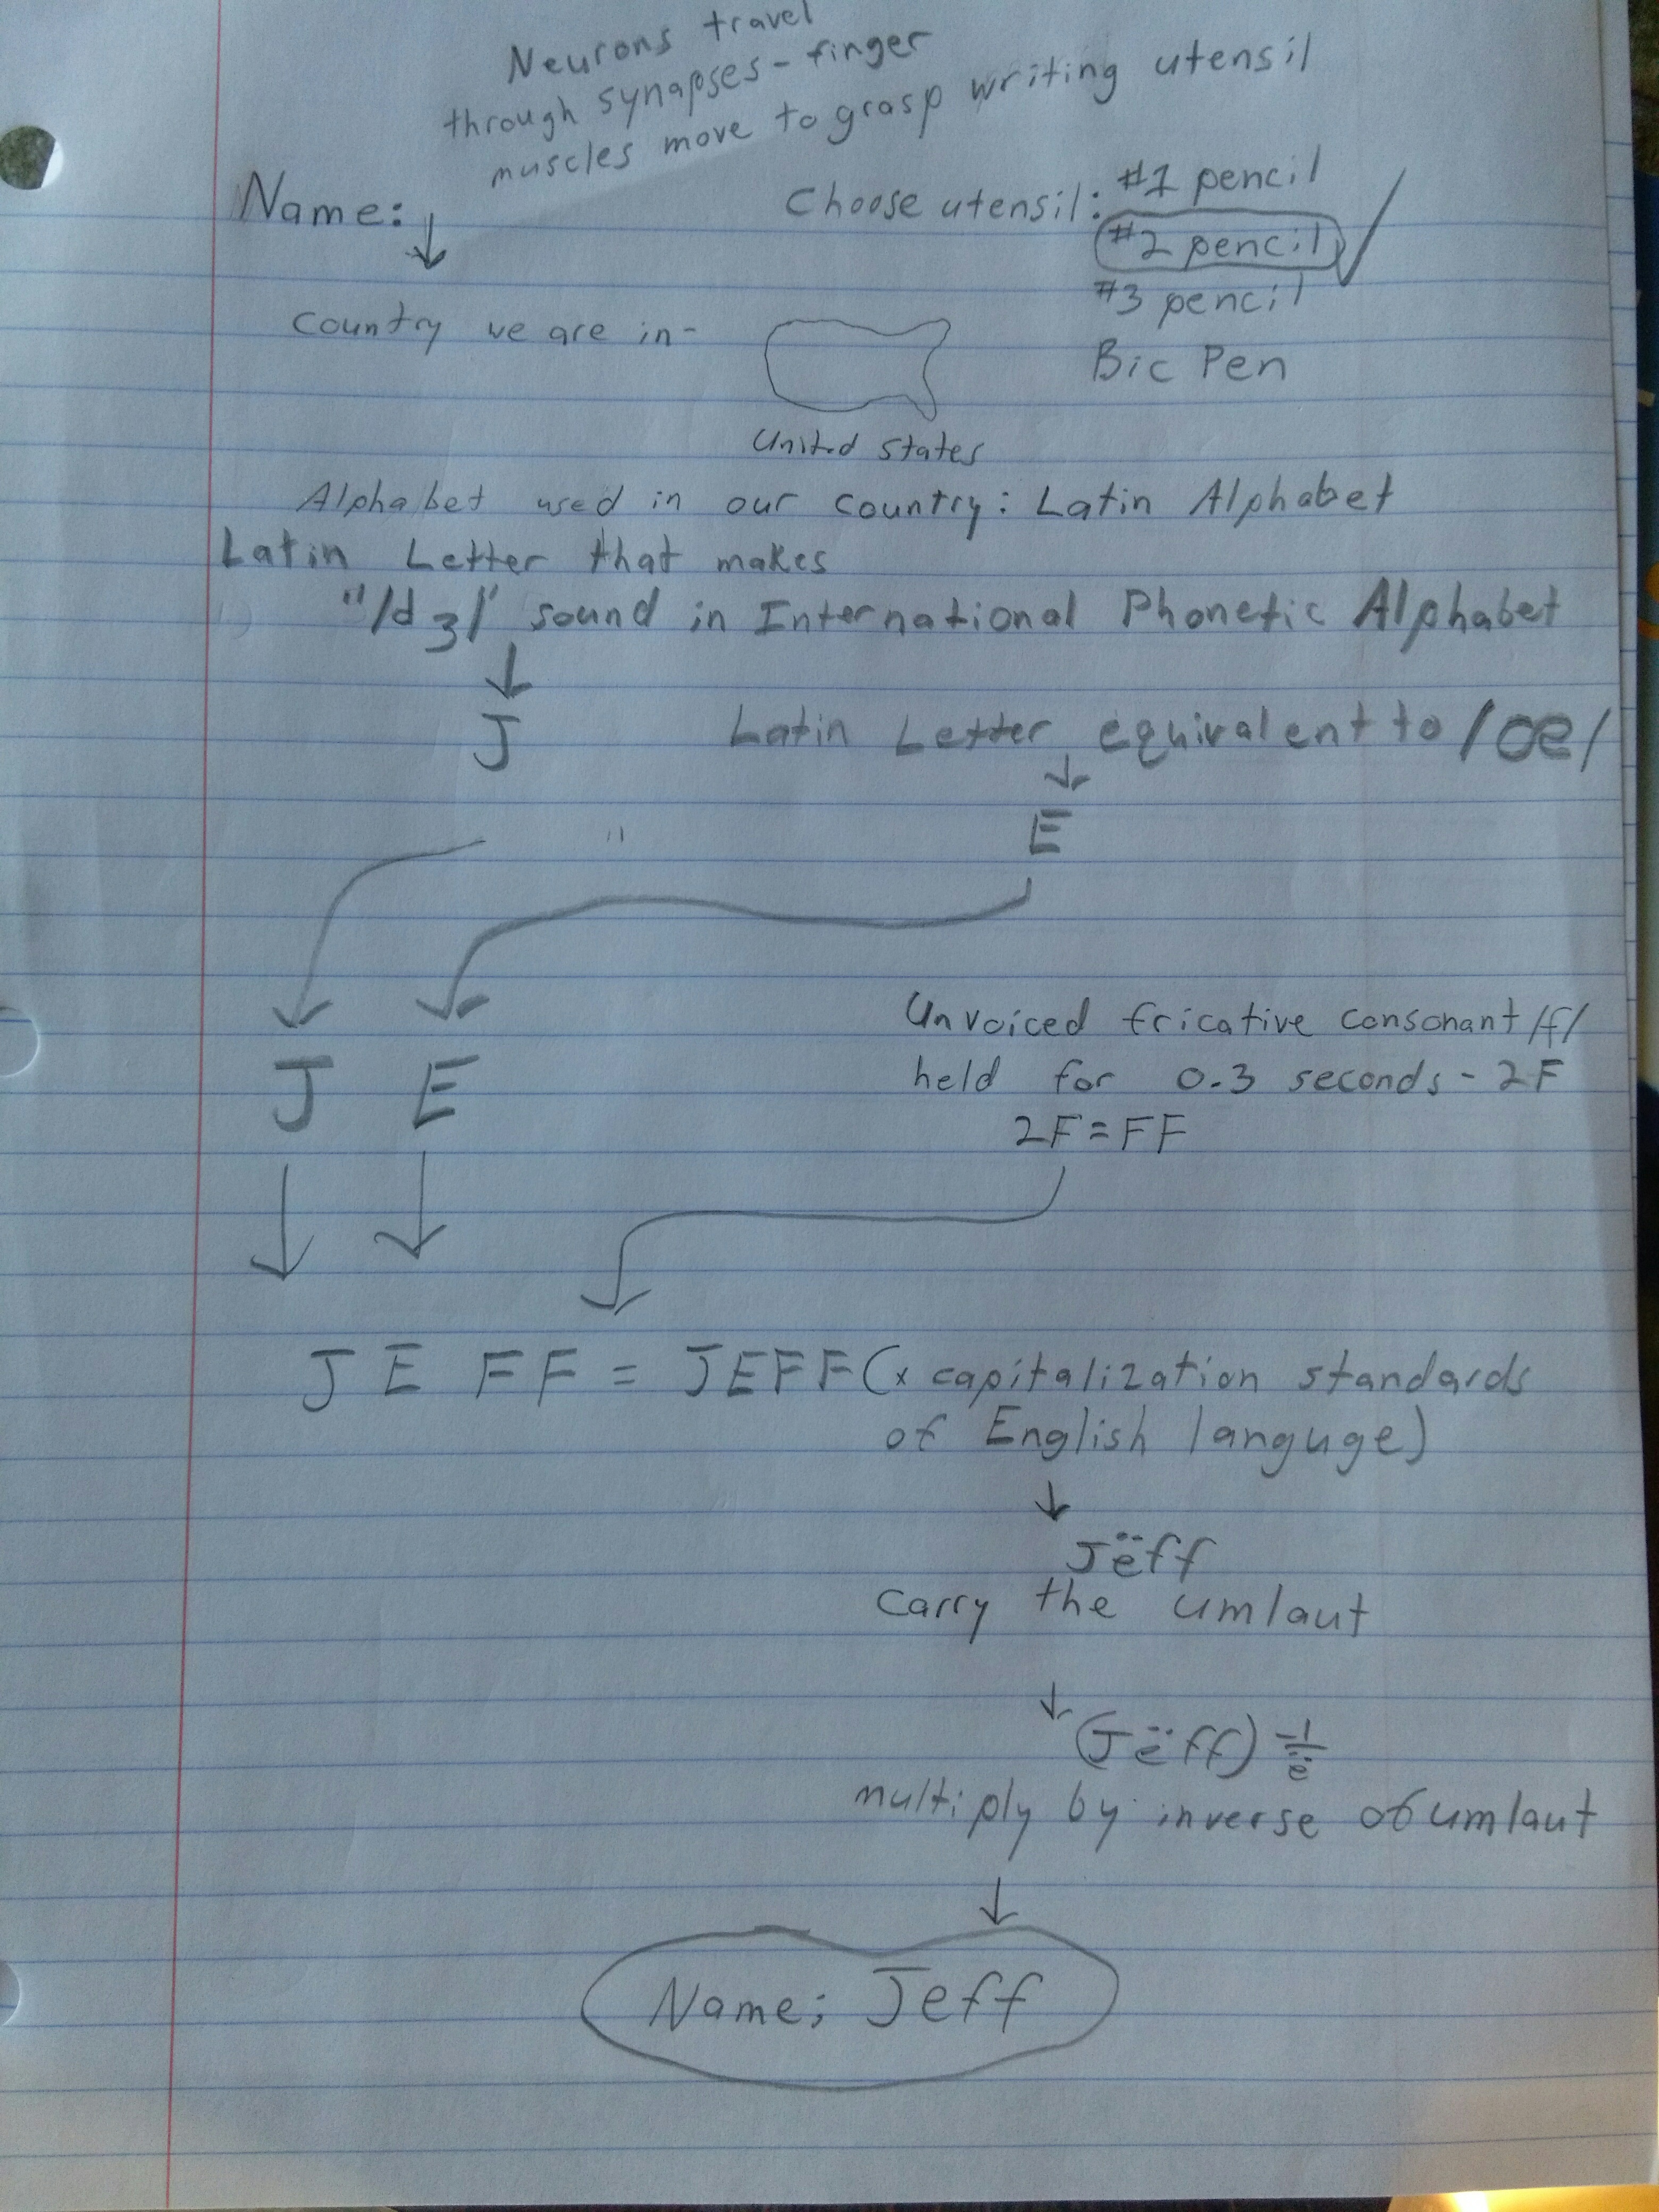 Neurons travel
through synapses - finger
muscles move to grasp writing utensil
Name:
Choose utensil: #1 pencil
#2 pencil
#3 pencil
Bic Pen
Country we are in-
United States
Alphabet used in our country: Latin Alphabet
Latin Letter that makes
"/dʒ/" sound in International Phonetic Alphabet
J
Latin Letter equivalent to /œ/
E
J E
Unvoiced fricative consonant /f/
held for 0.3 seconds - 2F
2F = FF
J E FF = JEFF (x capitalization standards
of English languge)
Jëff
Carry the umlaut
(Jëff) -1/ë
multiply by inverse of umlaut
Name: Jeff